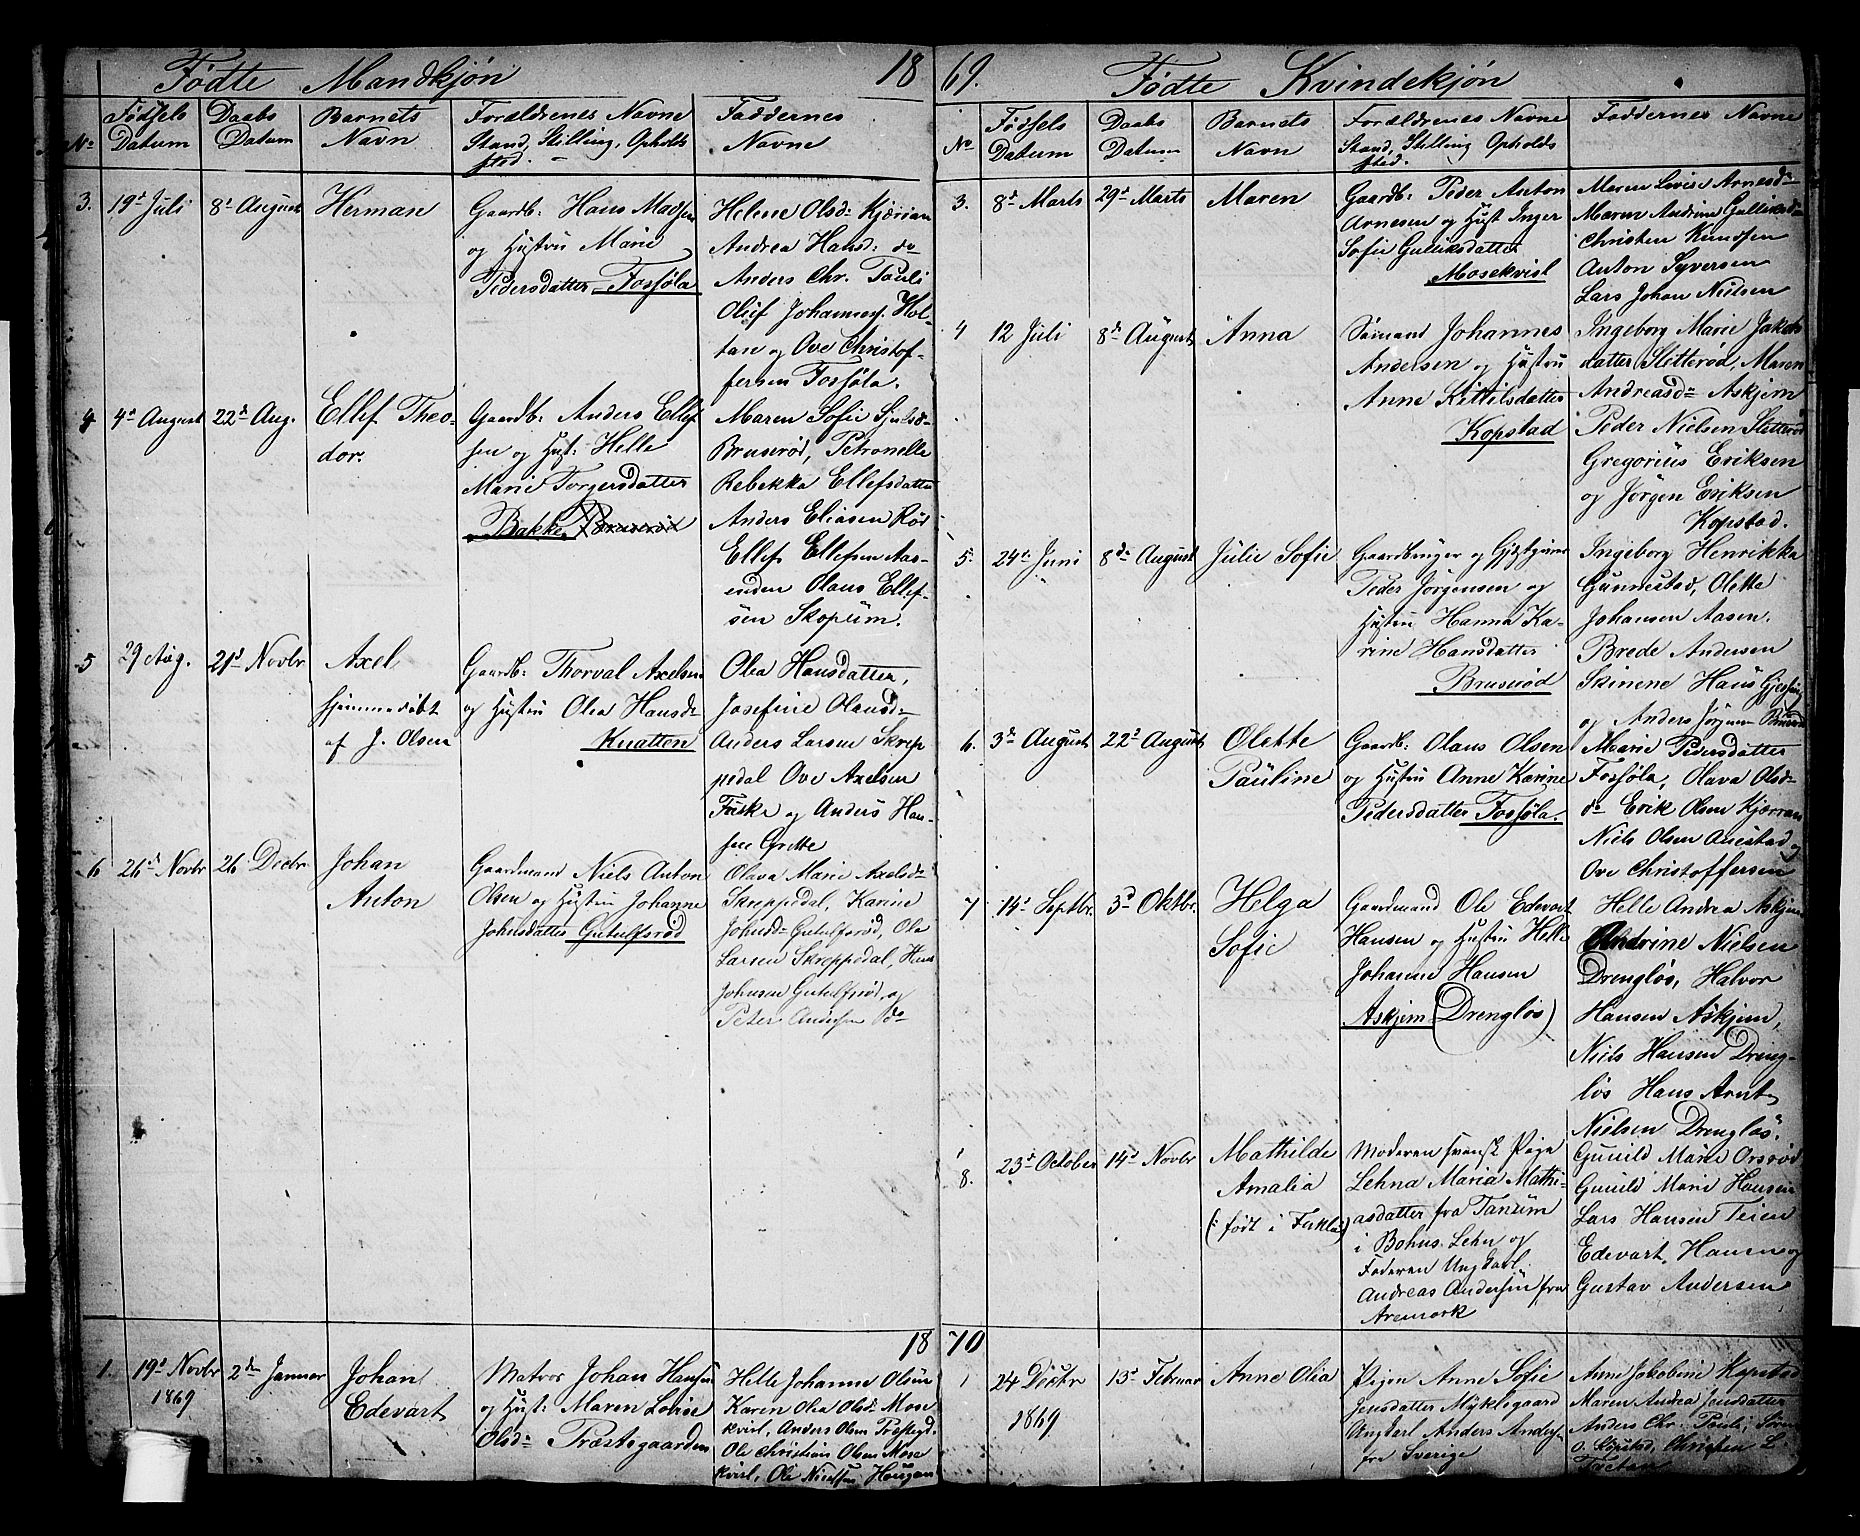 Fødte Mandkjön 18
No
Fødsels Datum
Daabs Datum
Barnets Navn
Forældrenes Navne Stand, Stilling, Opholds sted.
Faddernes Navne
3. 19d Juli
8d August
Herman
Gaardb: Hans Madsen
og Hustru Marie
Pedersdatter Fosföla
Helene Olsd: Kjærran
Andrea Hansd: do
Anders Chr. Pauli
Oluf Johannes. Hol-
tan og Ove Christof-
fersen Fosföla.
4 4d August
22d Aug.
Ellef Theo-
dor.
Gaardb: Anders Ellef
sen og Hust: Helle
Marie Torgersdatter
Bakke Bruserød
Maren Sofie
Bruserød, Petronelle
Rebekka Ellefsdatter
Anders Eliasen Rör
Ellef Ellefsen Aas-
enden Olaus Ellef-
sen Skopum.
5 29 Aug.
21d Novbr
Axel
hjemmedöbt
af J. Olsen
Gaardb: Thorval Axelsen
og Hustru Olea Hansd:
Knatten
Olea Hansdatter,
Josefine Olausd:
Anders Larsen Skrep
pedal Ove Axelsen
Fuske og Anders Han-
sen Grette
6 26d Novbr
26 Decbr
Johan
Anton
Gaardmand Niels Anton
Olsen og Hustru Johanne
Johnsdatter Gutulfsrød
Olava Marie Axelsd:
Skreppedal, Karine
Johnsd: Gutulfsrød, Ole
Larsen Skreppedal, Hans
Johnsen Gutulfsrød, og
Peter Andersen do
18
1. 19d Novbr
1869
2den Januar
Johan
Edevart
Matros Johan Hansen
og Hust: Maren Lovise
Olsd: Præstegaarden
Helle Johanne Olsen
Karen Olea Olsd: Mose
kvist, Anders Olsen Præstegd.
Ole Christian Olsen Mose
kvist, Ole Nielsen Haugan
69. Födte Kvindekjön
No
Födsels Datum
Daabs Datum
Barnets Navn
Forældrenes Navne Stand, Stilling Opholds sted.
Faddernes Navne
3. 8d Marts
29d Marts
Maren
Gaardb: Peder Anton
Arnesen og Hust Inger
Sofie Gulliksdatter
Mosekvist
Maren Lovise Arnesd:
Maren Andrine Gulliksd:
Christen Knudsen
Anton Syversen
Lars Johan Nielsen
4 12 Juli
8de August
Anna
Sömand Johannes
Andersen og Hustru
Anne Kittilsdatter
Kopstad
Ingeborg Marie Jakobs
datter Slitteröd, Maren
Andreasd: Askjem
Peder Nielsen Slitteröd
Gregorius Eriksen
og Jörgen Eriksen
Kopstad.
5. 24d Juni
8de August
Julie Sofie
Gaardbruger og
Peder Jörgensen og
Hustru Hanna Ka-
rine Hansdatter
Bruseröd
Ingeborg Henrikka
Gunnestad, Olette
Johansen Aasen.
Brede Andersen
Skinene Hans
og Anders Jörgensen
6. 3de August
22d August
Olette
Pauline
Gaardb: Olaus Olsen
og Hustru Anne Karine
Pedersdatter Fosföla.
Marie Pedersdatter
Fosföla, Olava Olsd:
do Erik Olsen Kjærran
Niels Olsen Auestad og
Ove Christoffersen
7 14d Septbr.
3d Oktbr.
Helga
Sofie
Gaardmand Ole Edevart
Hansen og Hustru Helle
Johanne Hansen
Askjem (Drenglös)
Helle Andrea Askjem
Andrine Nielsen
Drenglös, Halvor
Hansen Askjem,
Niels Hansen Dreng-
lös Hans Arnt
Nielsen Drenglös.
8. 23d October
14d Novbr
Mathilde
Amalia
(født i )
Moderen svensk Pige
Lehna Maria Mathi-
asdatter fra Tanum
i Bohus Lehn og
Faderen Ungkarl
Andreas Andersen fra
Aremark
Gunild Marie Orsröd
Gunild Marie Hansen
Lars Hansen Teien
Edevart Hansen og
Gustav Andersen
70
1 24 Decbr
1869
13d Februar
Anne Olia
Pigen Anne Sofie
Jensdatter Myklegaard
Ungkarl Anders Anders
fra Sverige
Anne Jakobine Kopstad
Maren Andrea Jensdatter
Anders Chr. Pauli, Sören
O. Kopstad, Christen L.